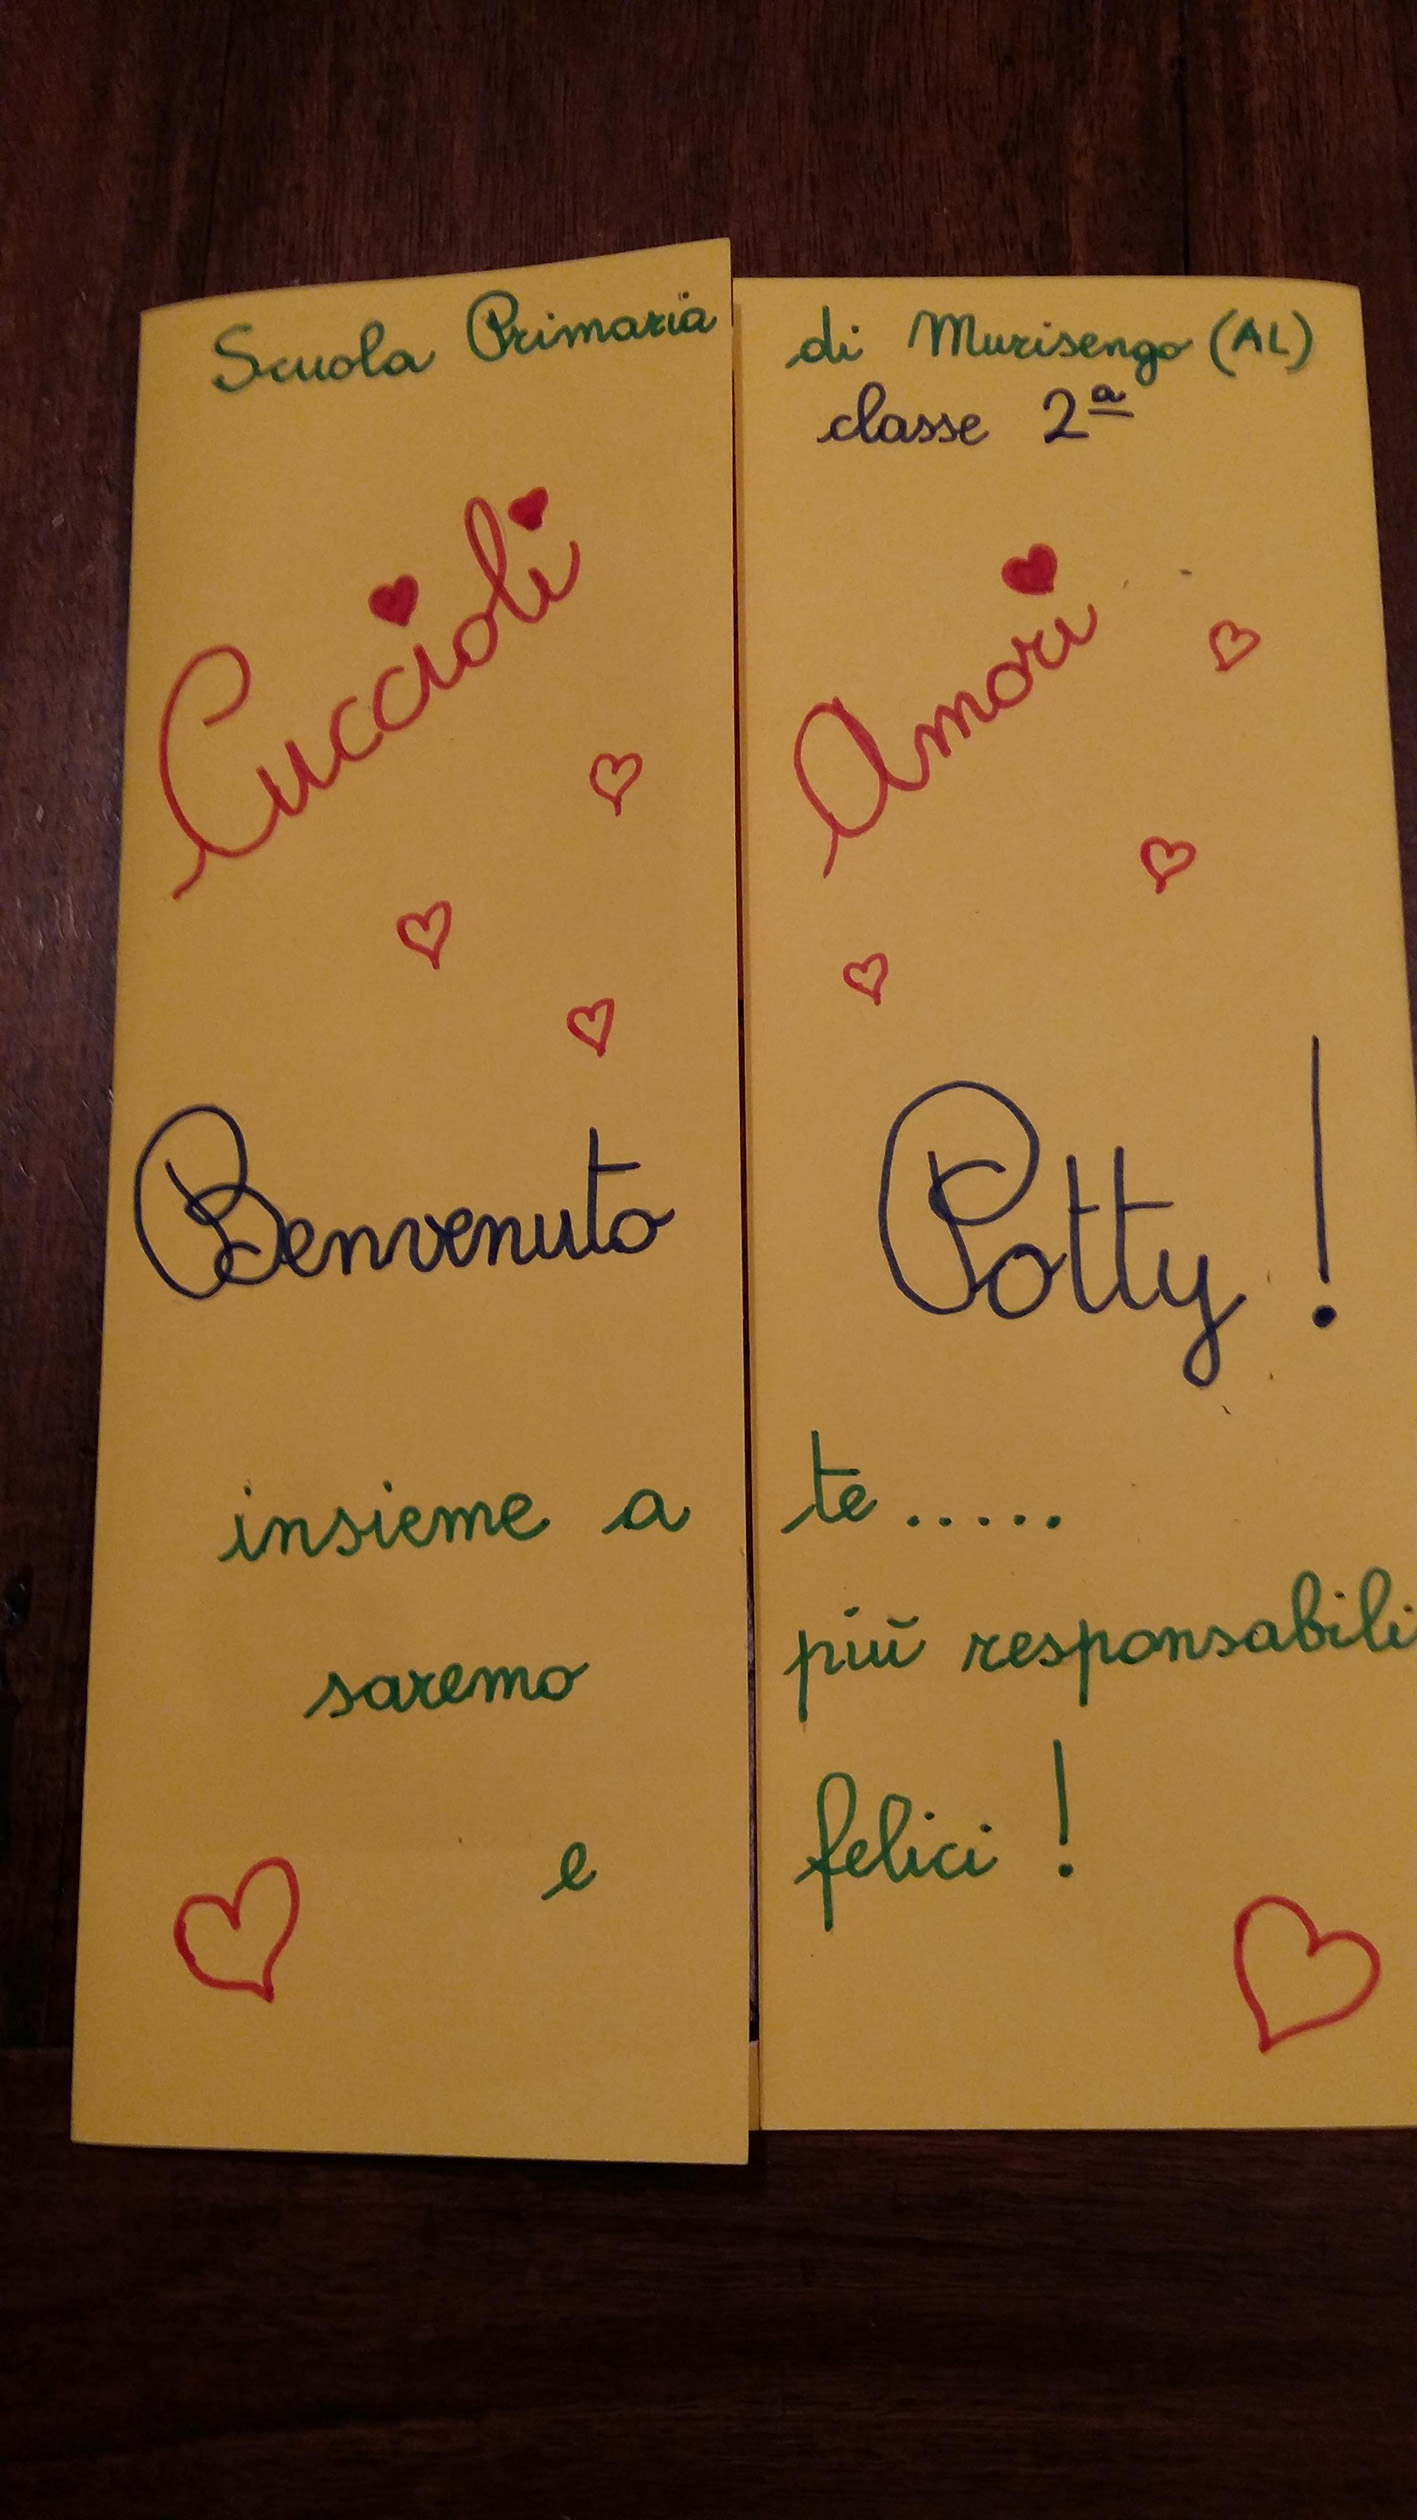 Scuola Primaria di Murisengo (AL)
classe 2ª
Cuccioli Amori
Benvenuto Potty!
insieme a te.....
saremo più responsabili
e felici!